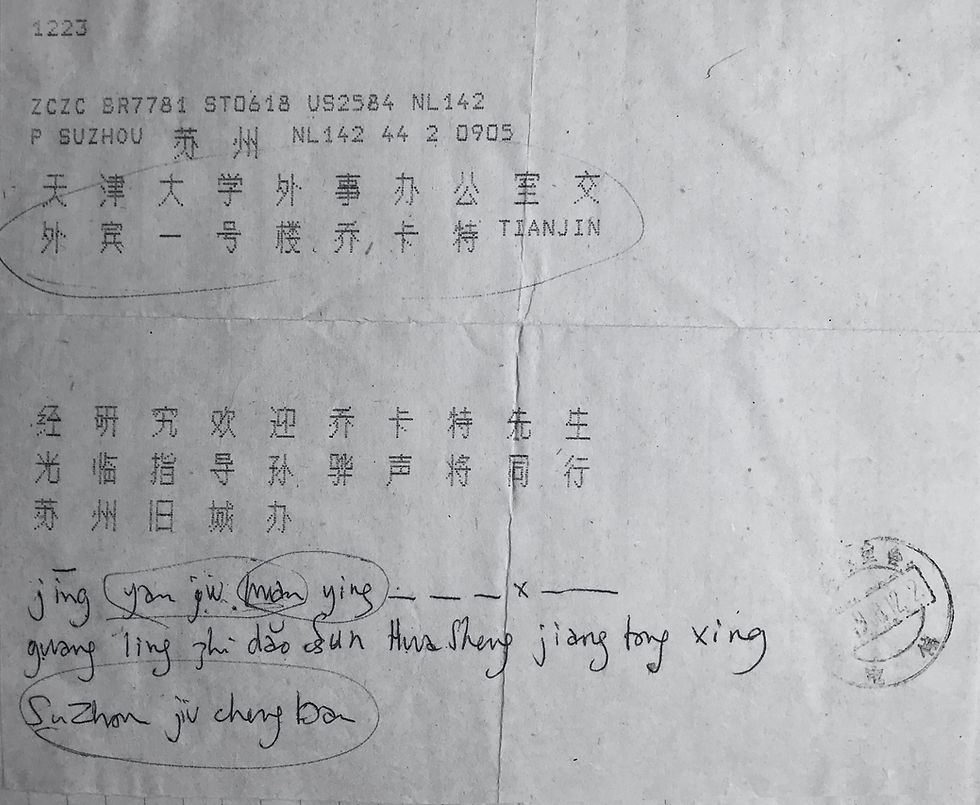 1223
ZCZC BR7781 ST0618 US2584 NL142
P SUZHOU 苏州 NL142 44 2 0905
天津大学外事办公室交
外宾一号楼乔卡特 TIANJIN
经研究欢迎乔卡特先生
光临指导孙骅声将同行
苏州旧城办
jīng yan jiu huan ying — — — — x —
guang ling zhi dǎo sun Hua Sheng jiang tong xing
SuZhou jiu cheng ban